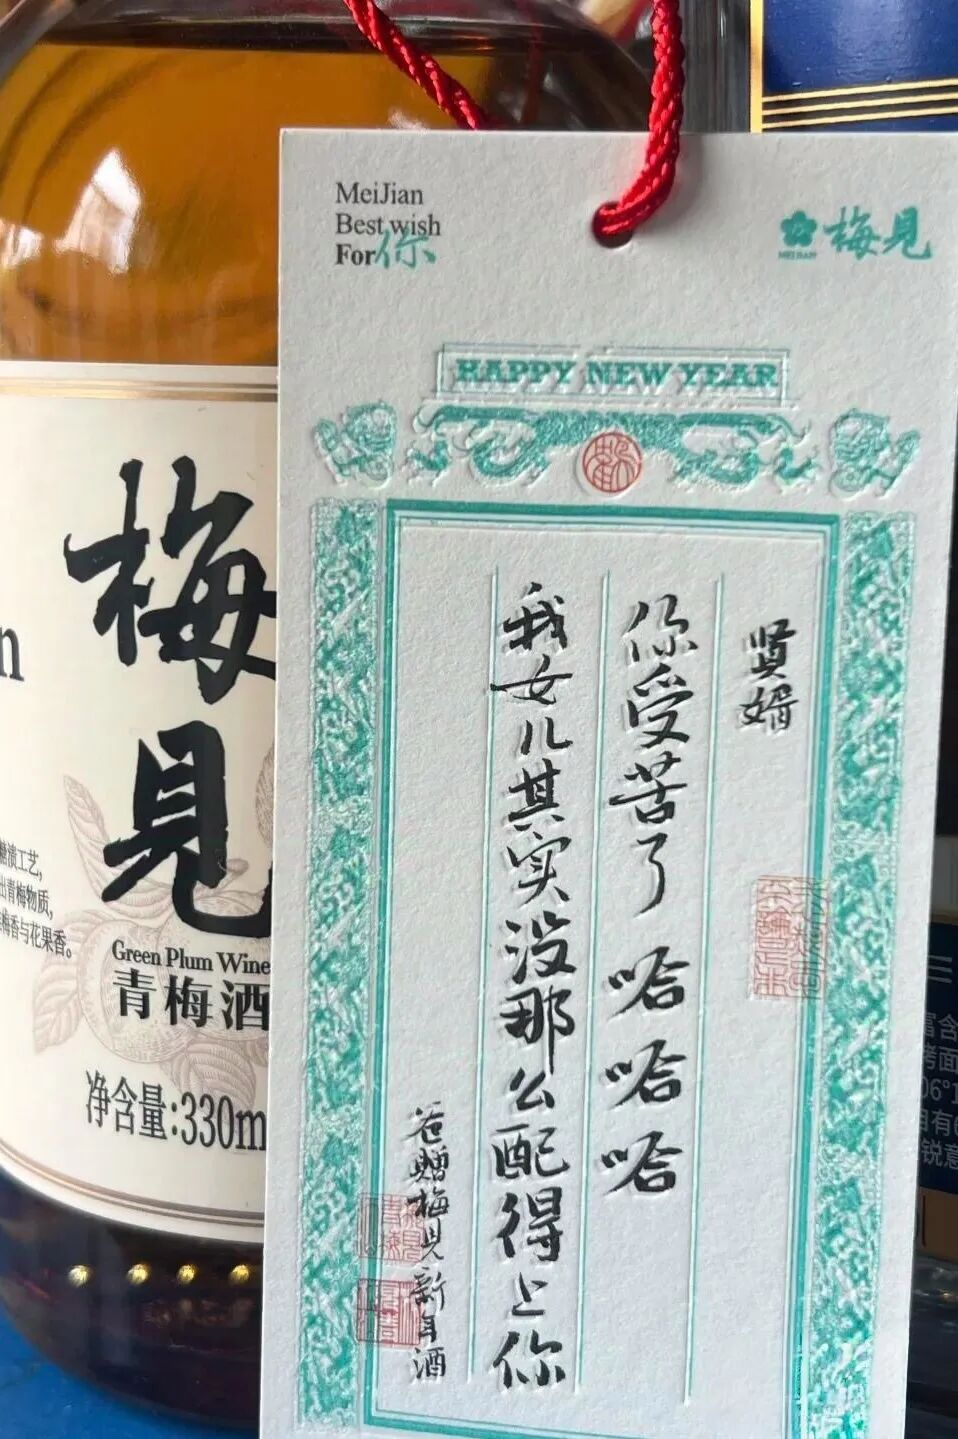 MeiJian
Best wish
For你
梅見
MEIJIAN
HAPPY NEW YEAR
贤婿
你受苦了 哈哈哈
我女儿其实没那么配得上你
爸赠梅见新年酒
梅見
Green Plum Wine
青梅酒
净含量:330m
n
渍工艺,
出青梅物质,
梅香与花果香。
富含
烤面
06°
自有
锐意